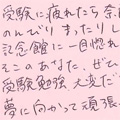 受験に疲れたら奈
のんびりまったりし
記念館に一目惚れ
そこのあなた、ぜひ
受験勉強大変だ
夢に向かって頑張